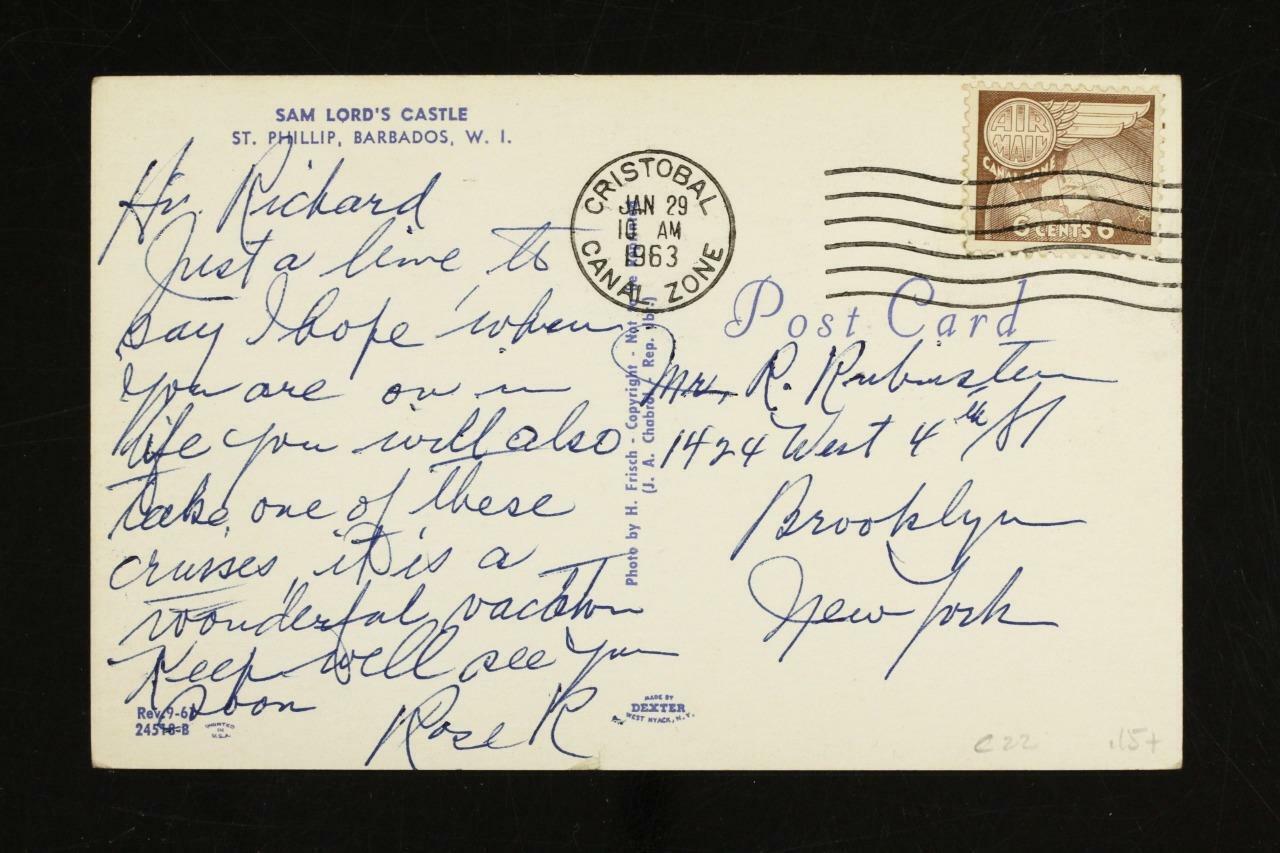 SAM LORD'S CASTLE
ST. PHILLIP, BARBADOS, W. I.
Hi. Richard
Just a line to
say I hope when
you are on in
life you will also
take one of these
cruises, it is a
wonderful vacation
Keep well see you
soon
Rose R
Rev. 9-61
24518-B
PRINTED
IN
U.S.A.
CRISTOBAL
JAN 29
10 AM
1963
CANAL ZONE
AIR
MAIL
CANAL ZONE
6 CENTS 6
Post Card
Mr. R. Rubinstein
1424 West 4th St
Brooklyn
New York
Photo by H. Frisch - Copyright - Not to be
(J. A. Chabrol, Rep. Jbr.)
MADE BY
DEXTER
WEST NYACK, N.Y.
C22
.15+